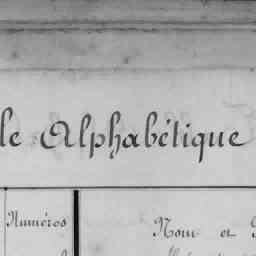 le Alphabétique
Numéros
Nom et